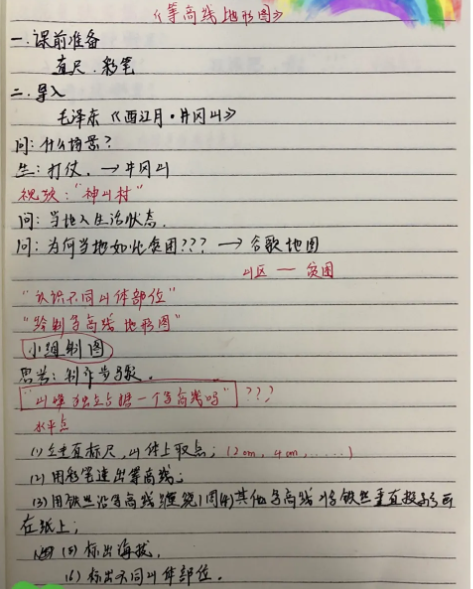 《等高线地形图》
一.课前准备
直尺.彩笔
二.导入
毛泽东《西江月·井冈山》
问:什么场景?
生:打仗.→井冈山
视频:"神山村"
问:当地人生活状态.
问:为何当地如此贫困???→谷歌地图
山区—贫困
"认识不同山体部位"
"绘制等高线地形图"
小组制图
思考:制作步骤.
"山峰独立占据一个等高线吗"???
水平点
(1)立垂直标尺,山体上取点;(2cm,4cm,......)
(2)用彩笔连出等高线;
(3)用铁丝沿等高线缠绕1周(4)其他等高线 将铁丝垂直投影
在纸上;
(5)标出海拔.
(6)标出不同山体部位.